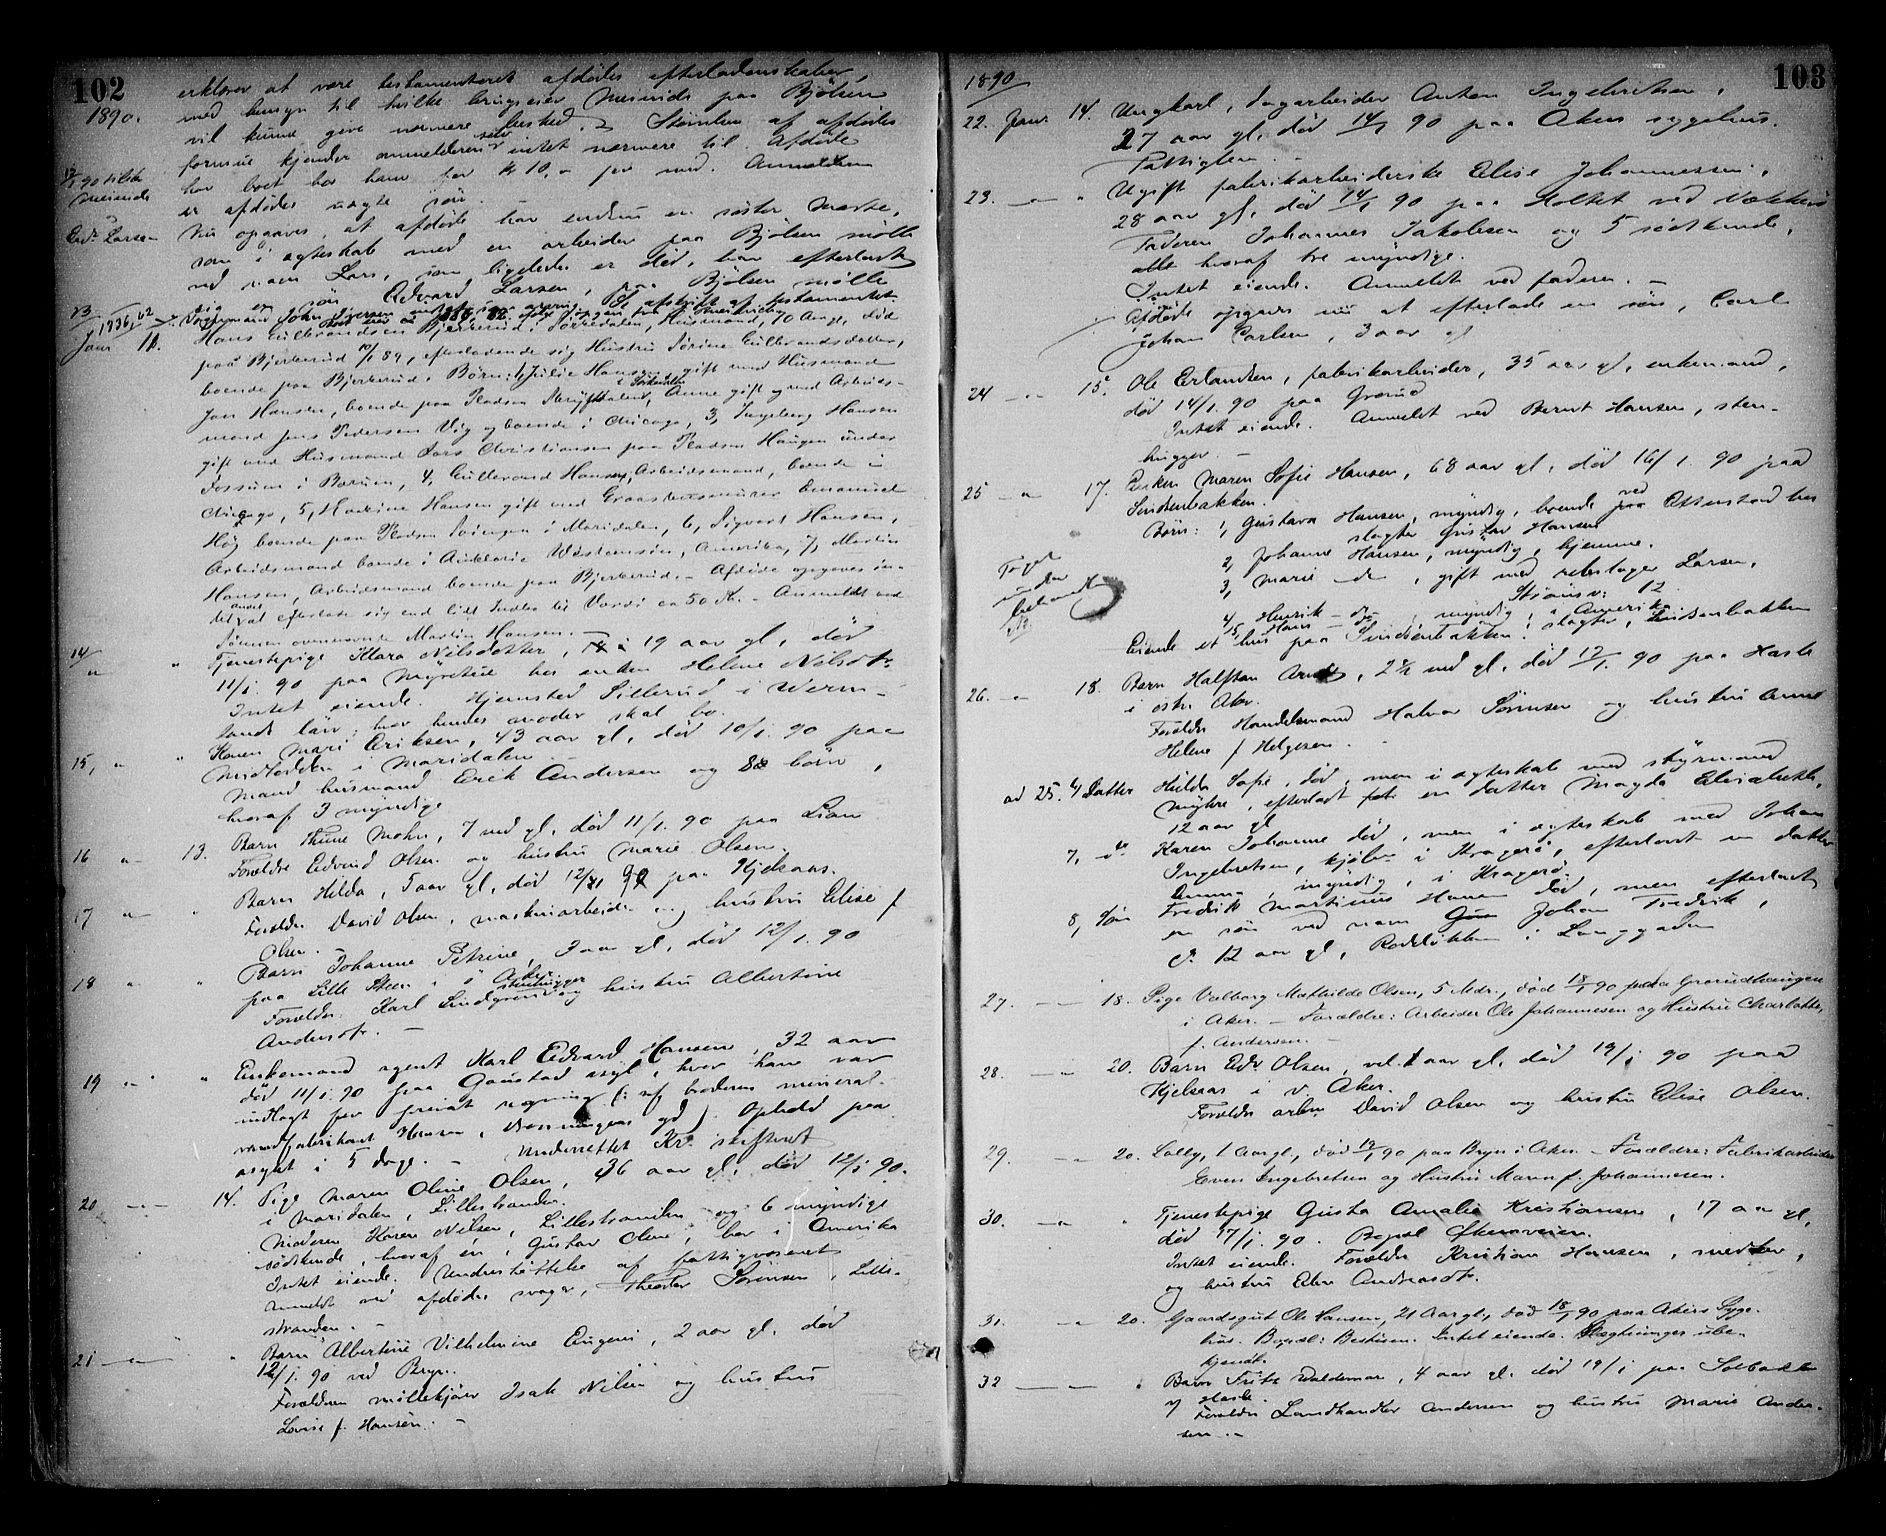 102
1890.
erklærer at være testamenteret afdødes efterladenskaber,
med hensyn til hvilke brugseier Meinich paa Bjølsen
vil kunne give nærmere besked. Størrelsen af afdødes
formue kjender anmelderen selv intet nærmere til. Afdøde
har boet hos ham for Kr 10,- per md. Anmelderen
er afdødes uægte søn.
Nu opgaves, at afdøde har endnu en søster Marthe,
som i ægteskab med en arbeider paa Bjølsen mølle
ved navn Lars, som ligeledes er død, har efterladt
sig en søn Edvard Larsen, paa Bjølsen mølle
Edv. Larsen
13 Janr 11. Hans Gulbrandsen Bjerkerud i Sørkedalen, Husmand, 70 Aar gl, død
paa Bjerkerud 10/1 89, efterladende sig Hustru Sørine Gulbrandsdatter,
boende paa Bjerkerud. Børn: 1, Julie Hansen gift med Husmand
Jan Hansen, boende paa Pladsen i Sørkedalen, Anne gift med Arbeids-
mand Jens Pedersen Vig og boende i Chicago, 3, Ingeborg Hansen
gift med Husmand Lars Christiansen paa Pladsen Haugen under
Fossum i Bærum, 4, Gulbrand Hansen, Arbeidsmand, boende i
Chicago, 5, Hansen gift med Emanuel
Høg boende paa Pladsen i Maridalen, 6, Sigvart Hansen,
Arbeidsmand boende i Amerika, 7, Martin
Hansen, Arbeidsmand boende paa Bjerkerud. - Afdøde opgaves in-
tet andet at efterlade sig end lidt Indbo til Værdi ca 50 Kr. - Anmeldt ved
Sønnen ovennævnte Martin Hansen. -
14 " " Tjenestepige Klara Nilsdatter, 19 aar gl, død
11/1. 90 paa Myrstue hos enken Helene Nilsdtr.
Intet eiende. Hjemsted Sillerud i Werm-
lands län, hvor hendes moder skal bo.
15, " " Karen Mari Eriksen, 43 aar gl, død 10/1. 90 paa
Midtodden i Maridalen.
Mand husmand Erik Andersen og 8 børn,
hvoraf 3 myndige
16 " 13. Barn Mohn, 7 md gl, død 11/1. 90 paa Lian
Forældre Edvard Olsen og hustru Marie Olsen.
17 " " Barn Hilda, 5 aar gl, død 12/1 90 paa Kjelsaas.
Forældre David Olsen, maskinarbeider og hustru Elise f
Olsen.
18 " " Barn Johanne Petrine, 3 aar gl, død 12/1. 90
paa Lille Steen i ø Aker.
Forældre: Karl Lindgren stenhugger og hustru Albertine
Andersdtr. -
19 " " Enkemand agent Karl Edvard Hansen, 32 aar
død 11/1. 90 paa Gaustad asyl, hvor han var
indlagt for privat regning (: af broderen mineral-
vandfabrikant Hansen, gd). Ophold paa
asylet i 5 dage. - Underrettet Kr. skifteret
20 - " - 14. Pige Maren Oline Olsen, 46 aar gl, død 12/1 90.
i Maridalen, Lillestranden.
Moderen Karen Nilsen, Lillestranden og 6 myndige
sødskende, hvoraf en, Gustav Olsen, bor i Amerika
Intet eiende. Understøttelse af fattigvæsenet
Anmeldt ved afdødes svoger, Theodor Sørensen, Lille-
stranden. -
21 - " - " Barn Albertine Vilhelmine Eugenie, 2 aar gl, død
12/1. 90 ved Bryn.
Forældrene møllekjører Isak Nilsen og hustru
Lovise f. Hansen. -
103
1890
22. Janr. 14. Ungkarl, dagarbeider Anton Ingebretsen,
27 aar gl, død 14/1 90 paa Akers sygehus.
Fattiglem. -
23. - " - " Ugift fabrikarbeiderske Elise Johannessen,
28 aar gl, død 14/1 90 paa Holtet ved Vækkerø
Faderen Johannes Jakobsen og 5 sødskende,
alle hvoraf tre myndige.
Intet eiende. Anmeldt ved faderen. -
Afdøde opgaves nu at efterlade en søn, Carl
Johan Carlsen, 3 aar gl
24 - " - 15. Ole Erlandsen, fabrikarbeider, 35 aar gl, enkemand,
død 14/1. 90 paa Grorud
Intet eiende. Anmeldt ved Bernt Hansen, sten-
hugger. -
25 - " - 17. Enken Maren Sofie Hansen, 68 aar gl, død 16/1. 90 paa
Lindsenbakken.
Børn: 1, Gustava Hansen, myndig, boende ved Ottenstad hos
slagter Gustav Hansen
2, Johanne Hansen, myndig, hjemme.
3, Marie - do -, gift med rebslager Larsen,
Strømsv: 12
4, Henrik - do -, myndig, i Amerika
5, Hans slagter, Lindsenbakken
Eiende et hus paa Lindsenbakken.
Taget
under
behandling
26. - " - 18. Barn Halfdan Arndt, 2½ md gl, død 17/1. 90 paa Hasle
i østre Aker.
Forældre Handelsmand Halvor Sørensen og hustru Anne
Helene f Helgesen. -
ad 25. 6/ Datter Hilda Sofie, død, men i ægteskab med styrmand
Myhre, efterladt en datter Magda Elisabeth,
12 aar gl
7, do Karen Johanne død, men i ægteskab med Johan
Ingebretsen, kjøbm i Kragerø, efterladt en datter
Anna, myndig, i Kragerø.
8, Søn Fredrik Martinus Hansen død, men efterladt
en søn ved navn Johan Fredrik,
12 aar gl, Rodeløkken i Langgaden
27. - " - 18. Pige Valborg Mathilde Olsen, 5 Mdr., død 18/1 90 paa Grorudhaugen
i Aker. - Forældre: Arbeider Ole Johannesen og Hustru Charlotte,
f. Andersen. -
28. - " - 20. Barn Edv Olsen, 1 aar gl, død 19/1 90 paa
Kjelsaas i v. Aker.
Forældre arbm David Olsen og hustru Elise Olsen.
29. - " - 20. Lolly, 1 Aar gl, død 19/1 90 paa Bryn i Aker. - Forældre: Fabrikarbeider
Even Ingebretsen og Hustru Maren f. Johannesen.
30. - " - " Tjenestepige Gusta Amalie Kristiansen, 17 aar gl,
død 17/1. 90. Bopæl Ekebergveien.
Intet eiende. Forældre Kristian Hansen, snedker,
og hustru Elen Andreasdtr.
31. - " - 20. Gaardsgut Ole Hansen, 21 Aar gl, død 18/1 90 paa Akers Syge-
hus. Bopæl: Bestum. Intet eiende. Slægtninger ube-
kjendt.
32 - " - " Barn Fritz Valdemar, 4 aar gl, død 19/1 paa Solbakken
v/ Hasle.
Forældre Landhandler Andersen og hustru Marie Ander-
sen. -